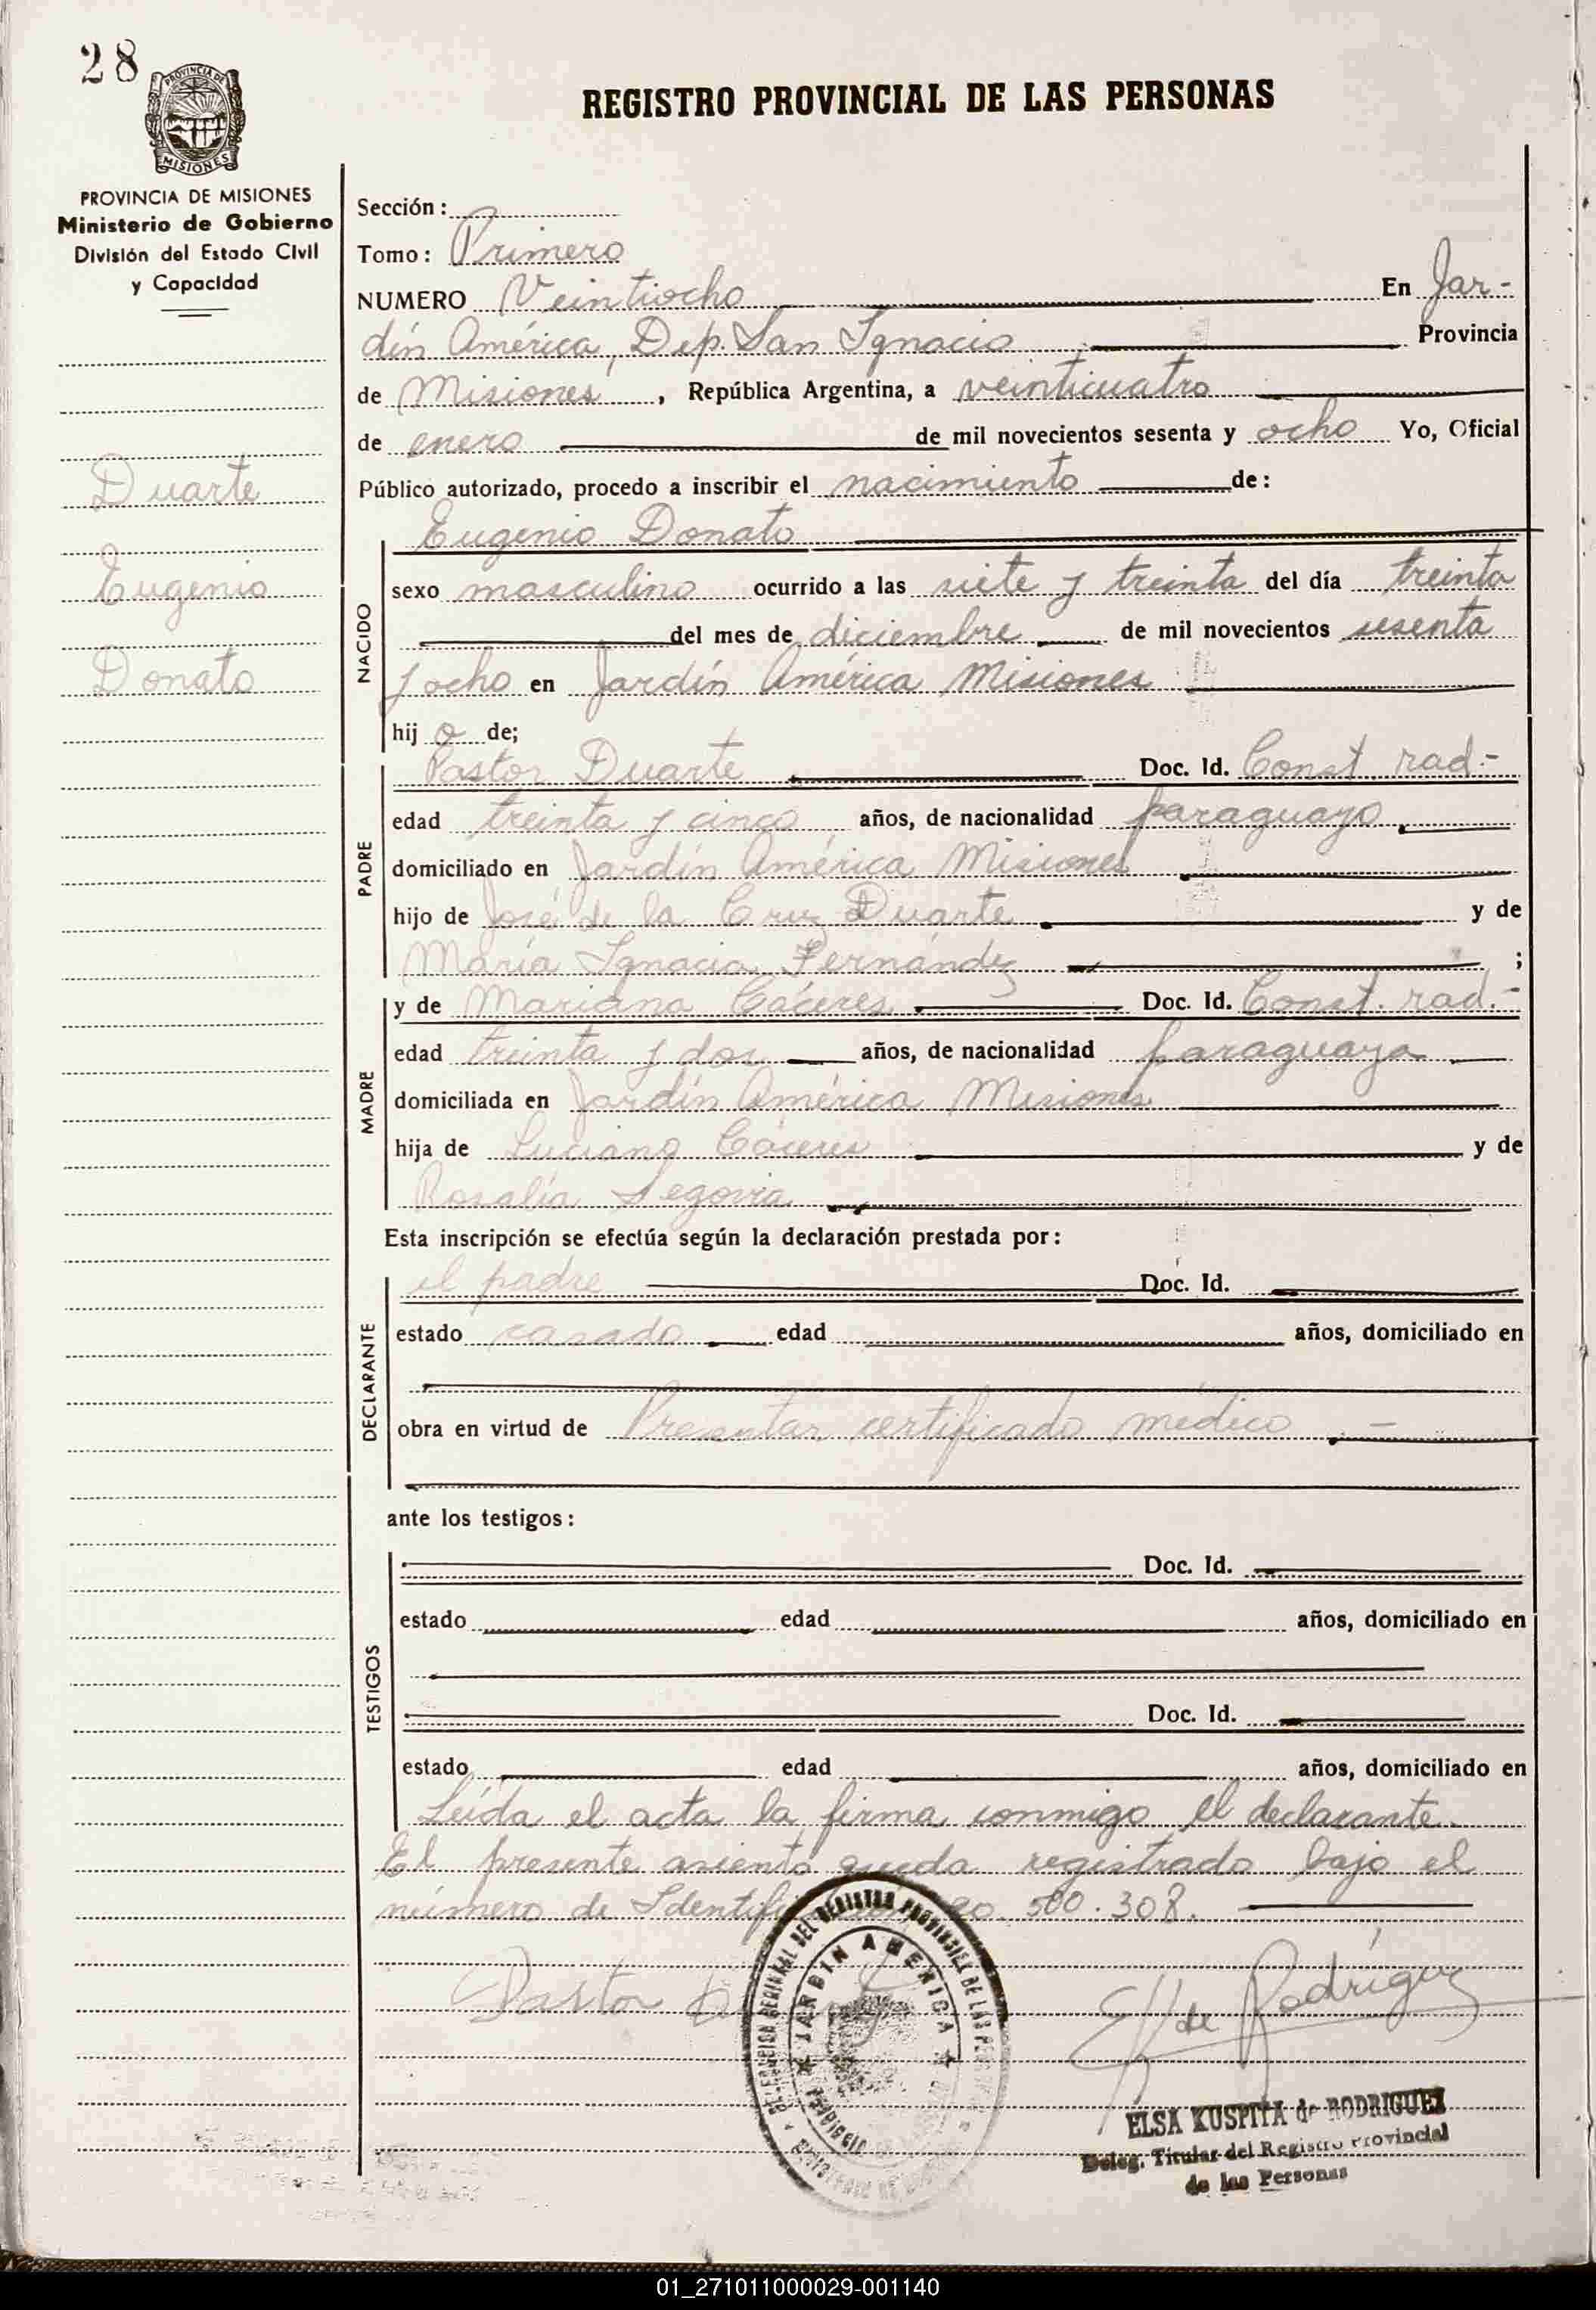 28
PROVINCIA DE
MISIONES
REGISTRO PROVINCIAL DE LAS PERSONAS
PROVINCIA DE MISIONES
Ministerio de Gobierno
División del Estado Civil
y Capacidad
Duarte
Eugenio
Donato
Sección:
Tomo: Primero
NUMERO Veintiocho En Jar-
dín América, Dep. San Ignacio Provincia
de Misiones, República Argentina, a veinticuatro
de enero de mil novecientos sesenta y ocho Yo, Oficial
Público autorizado, procedo a inscribir el nacimiento de:
Eugenio Donato
NACIDO
sexo masculino ocurrido a las siete y treinta del día treinta
del mes de diciembre de mil novecientos sesenta
y ocho en Jardín América Misiones
hij o de;
PADRE
Pastor Duarte Doc. Id. Const. rad.-
edad treinta y cinco años, de nacionalidad paraguayo
domiciliado en Jardín América Misiones
hijo de José de la Cruz Duarte y de
María Ignacia Fernández ;
MADRE
y de Mariana Cáceres Doc. Id. Const. rad.-
edad treinta y dos años, de nacionalidad paraguaya
domiciliada en Jardín América Misiones
hija de Luciano Cáceres y de
Rosalía Segovia
Esta inscripción se efectúa según la declaración prestada por:
DECLARANTE
el padre Doc. Id.
estado casado edad años, domiciliado en
obra en virtud de Presentar certificado médico -
ante los testigos:
TESTIGOS
Doc. Id.
estado edad años, domiciliado en
Doc. Id.
estado edad años, domiciliado en
Leída el acta la firma conmigo el declarante.
El presente asiento queda registrado bajo el
número de Identifi 20.500.308.
Pastor
de Rodríguez
DELEGACION REGIONAL DEL REGISTRO PROVINCIAL DE LAS
JARDIN AMERICA
ELSA KUSPITA de RODRIGUEZ
Deleg. Titular del Registro Provincial
de las Personas
01_271011000029-001140